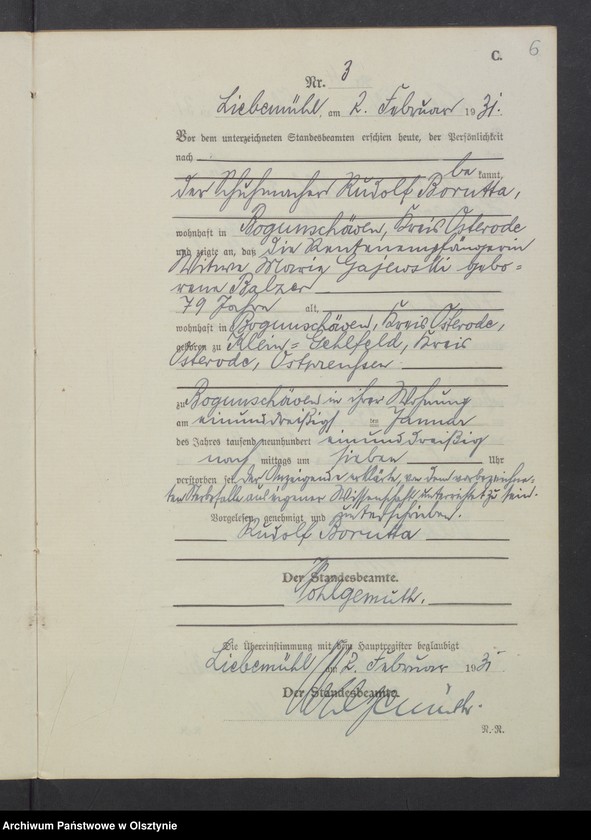 6
C.
Nr. 3
Liebemühl, am 2. Februar 1931.
Vor dem unterzeichneten Standesbeamten erschien heute, der Persönlichkeit
nach
be kannt,
der Schuhmacher Rudolf Borutta,
wohnhaft in Bogunschöwen, Kreis Osterode
und zeigte an, daß die Rentenempfängerin
Witwe Marie Gajewski gebo=
rene Balzer
79 Jahre alt,
wohnhaft in Bogunschöwen, Kreis Osterode,
geboren zu Klein=Gehlfeld, Kreis
Osterode, Ostpreußen
zu Bogunschöwen in ihrer Wohnung
am einunddreißigsten Januar
des Jahres tausend neunhundert einunddreißig
nach mittags um sieben Uhr
verstorben sei. Der Anzeigende erklärte, von dem vorbezeichne=
ten Sterbefalle aus eigener Wissenschaft unterrichtet zu sein.
Vorgelesen, genehmigt und unterschrieben.
Rudolf Borutta
Der Standesbeamte.
Wohlgemuth.
Die Übereinstimmung mit dem Hauptregister beglaubigt
Liebemühl, am 2. Februar 1931
Der Standesbeamte.
Wohlgemuth.
R.-R.
Archiwum Państwowe w Olsztynie